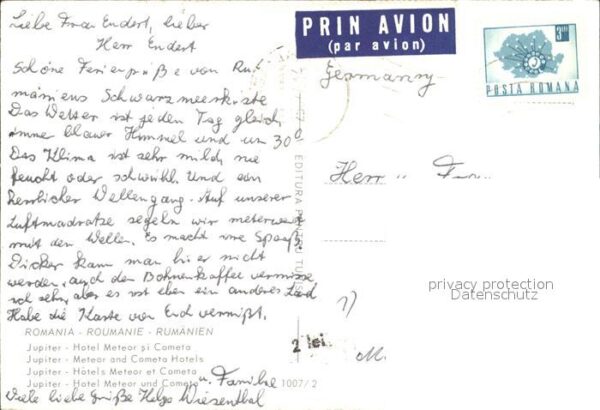 Liebe Frau Endert, lieber
Herr Endert
Schöne Feriengrüße von Ru
mäniens Schwarzmeerküste
Das Wetter ist jeden Tag gleich,
immer blauer Himmel und um 30°
Das Klima ist sehr milch nie
feucht oder schwühl. Und ein
herrlicher Wellengang. Auf unserer
Luftmadratze segeln wir meterweit
mit den Wellen. Es macht uns Spaaß.
Dicker kann man hier nicht
werden, auch den Bohnenkaffee vermisse
ich sehr, aber es ist eben ein anderes Land
Habe die Karte von Euch vermißt.
ROMANIA - ROUMANIE - RUMÄNIEN
Jupiter - Hotel Meteor și Cometa
Jupiter - Meteor and Cometa Hotels
Jupiter - Hôtels Meteor et Cometa
Jupiter - Hotel Meteor und Cometa
1007/2
Viele liebe Grüße Helga Wiesenthal
u. Familie
EDITURA PENTRU TURISM
PRIN AVION
(par avion)
3 lei
POSTA ROMANA
Germanny
Herr u Frau
privacy protection
Datenschutz
2 lei
M.